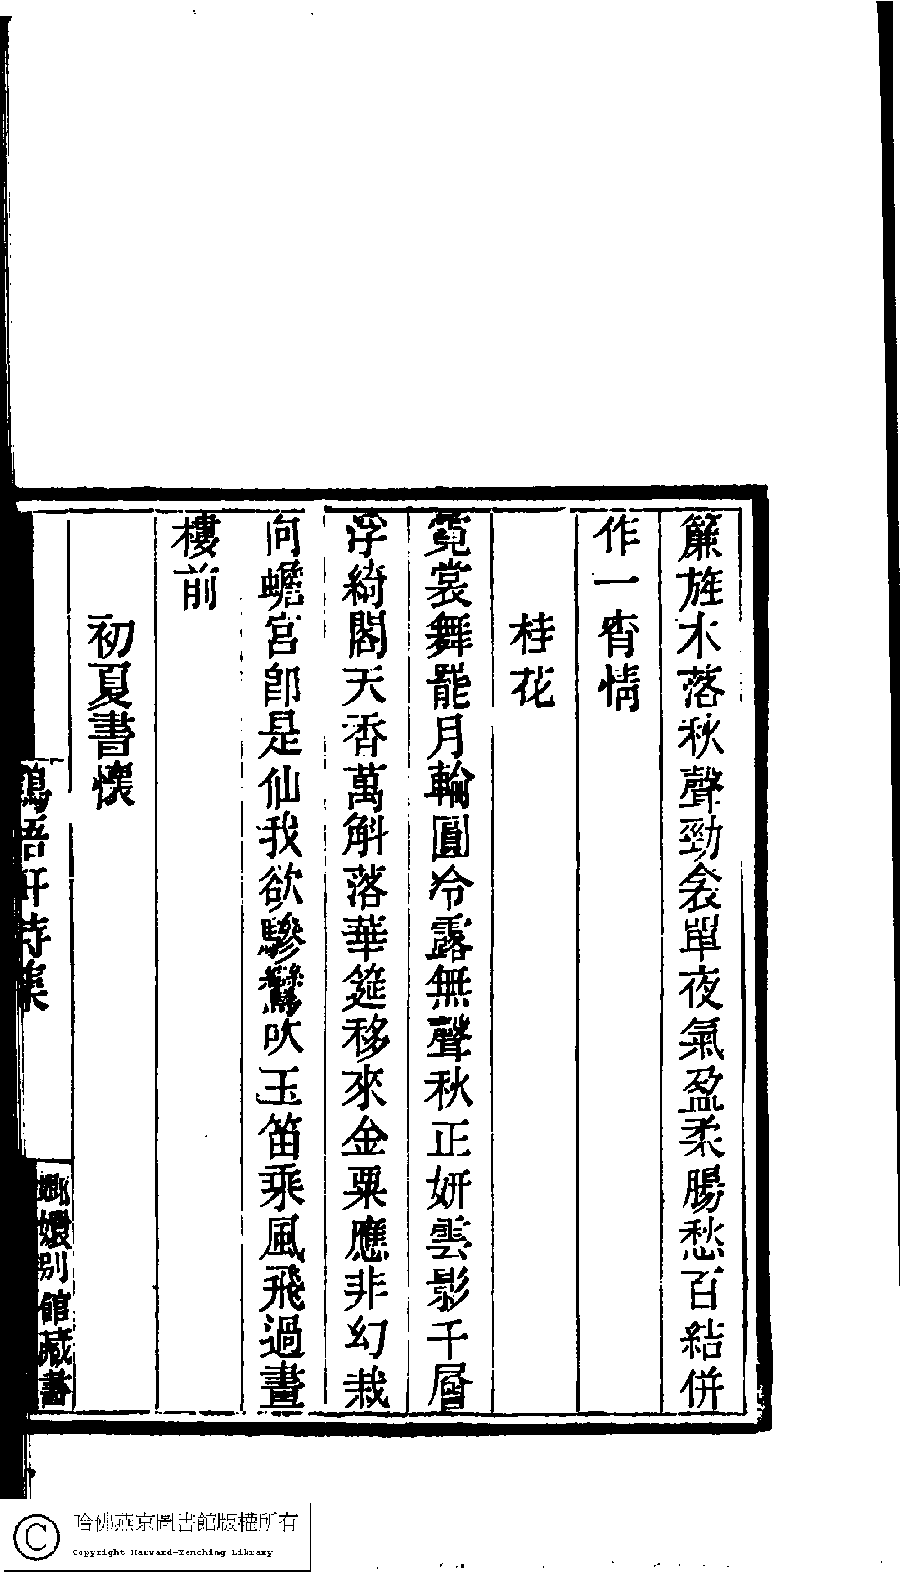 簾旌木落秋聲勁衾單夜氣盈柔腸愁百結併
作一宵情
桂花
霓裳舞罷月輪圓冷露無聲秋正妍雲影千層
浮綺閣天香萬斛落華筵移來金粟應非幻栽
向蟾宮即是仙我欲驂鸞吹玉笛乘風飛過畫
樓前
初夏書懷
鶴語軒詩集
嫏嬛別館藏書
哈佛燕京圖書館版權所有
Copyright Harvard-Yenching Library